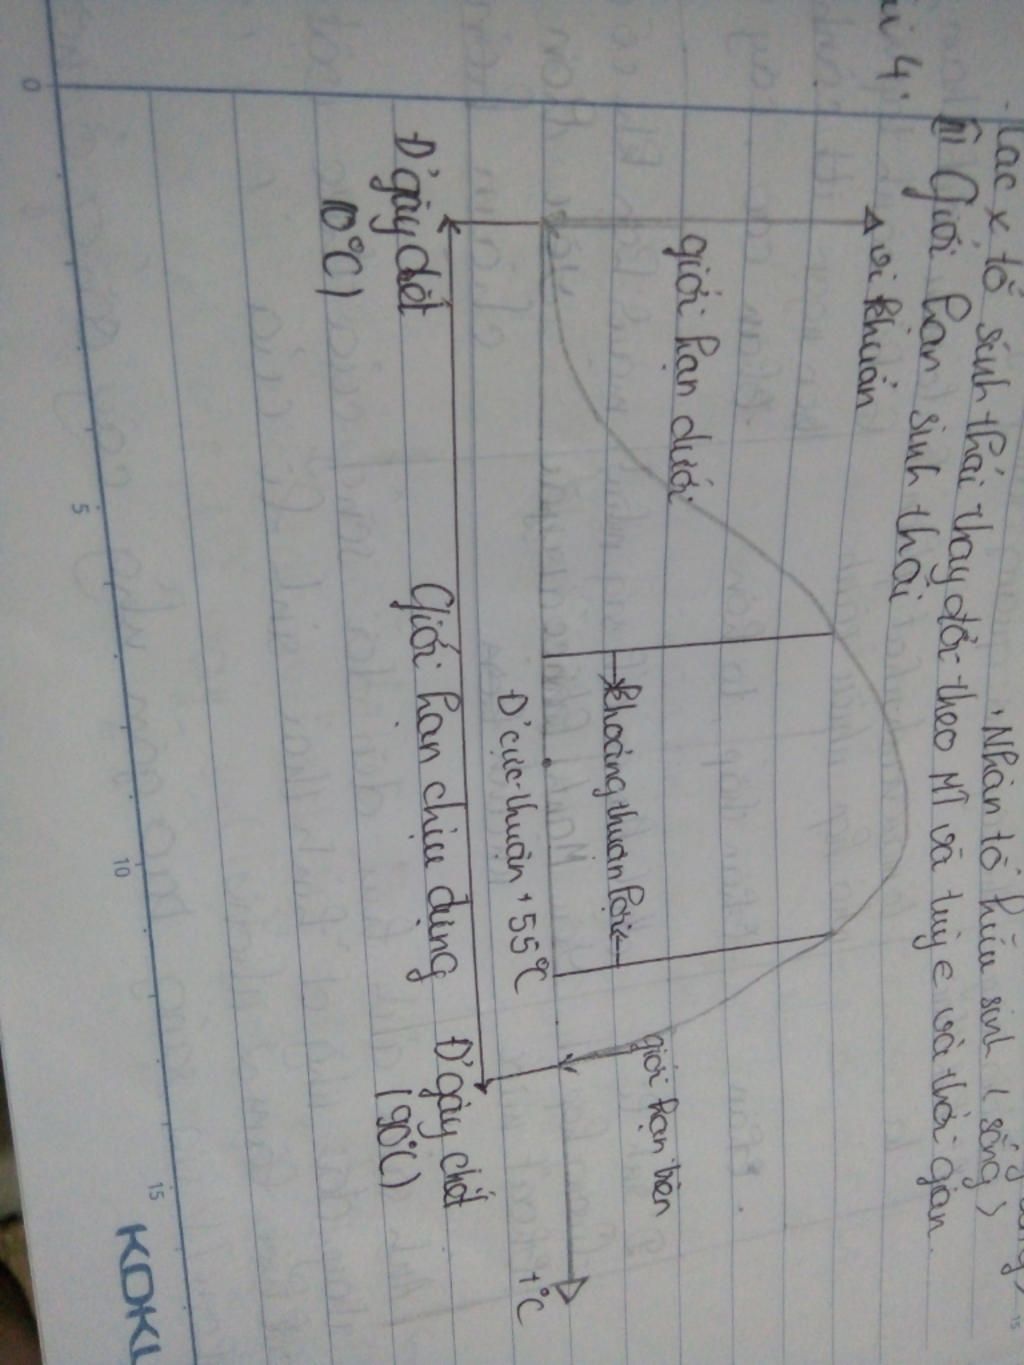 Các x tố sinh thái thay đổi theo MT và tùy € và thời gian.
· Nhân tố hữu sinh ( sống )
4.
III Giới hạn sinh thái
vi khuẩn
giới hạn dưới
giới hạn trên
khoảng thuận lợi
Đ' cực thuận + 55°C
t°C
Giới hạn chịu đựng
Đ' gây chết
10°C)
Đ' gây chết
(90°C)
0
5
10
15